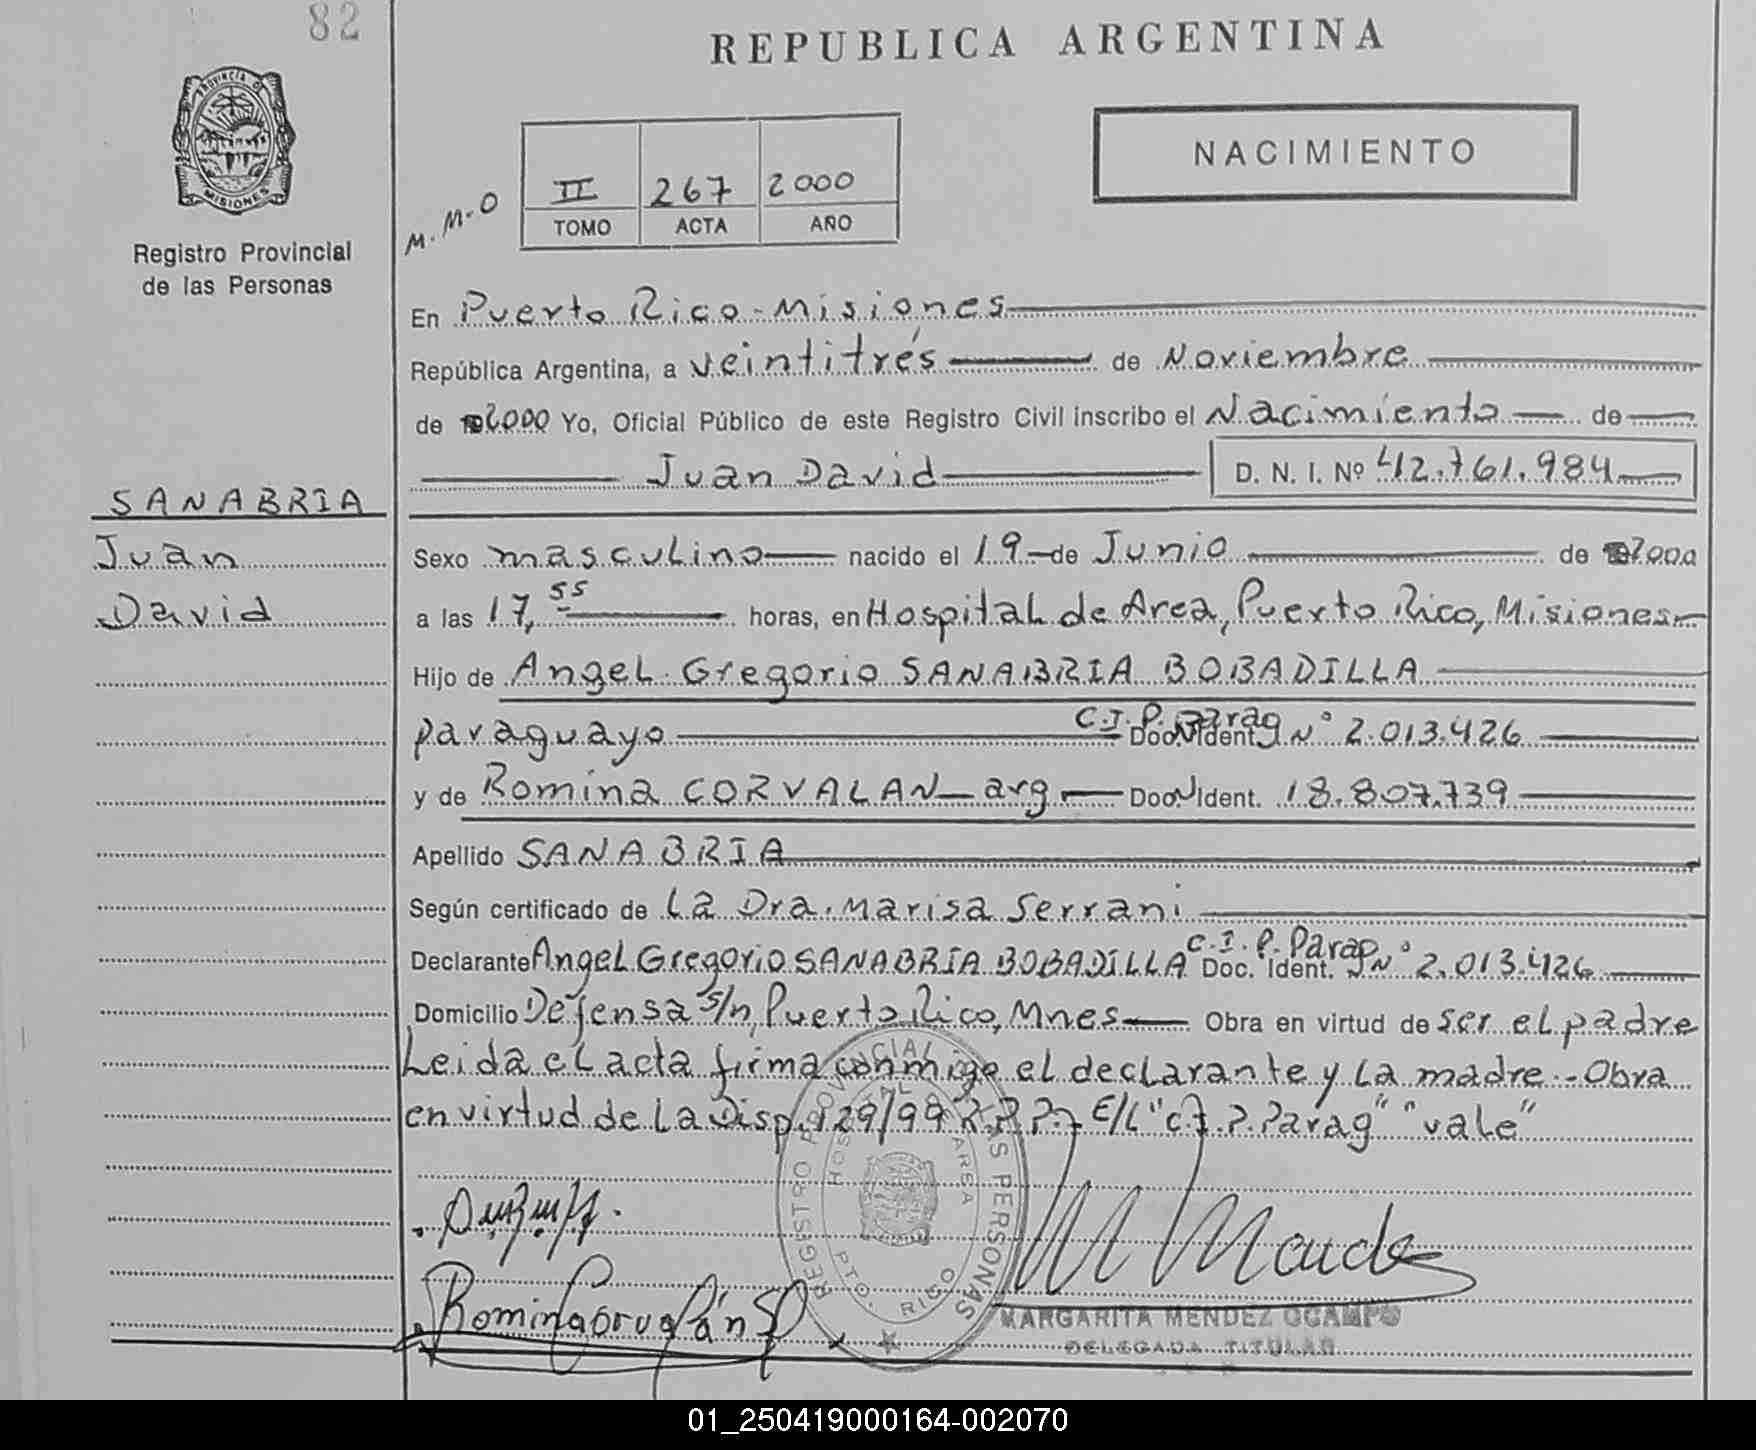 82
REPUBLICA ARGENTINA
PROVINCIA DE
MISIONES
Registro Provincial
de las Personas
M.M.O
II 267 2000
TOMO ACTA AÑO
NACIMIENTO
En Puerto Rico-Misiones
República Argentina, a veintitrés de Noviembre
de 2000 Yo, Oficial Público de este Registro Civil inscribo el Nacimiento de
Juan David D. N. I. Nº 42.761.984
SANABRIA
Juan
David
Sexo masculino nacido el 19 de Junio de 2000
a las 17,55 horas, en Hospital de Area, Puerto Rico, Misiones
Hijo de Angel Gregorio SANABRIA BOBADILLA
paraguayo C.I.P. Parag Doc. Ident. N° 2.013.426
y de Romina CORVALAN arg Doc. Ident. 18.807.739
Apellido SANABRIA
Según certificado de La Dra. Marisa Serrani
Declarante Angel Gregorio SANABRIA BOBADILLA C.I.P. Parag Doc. Ident. N° 2.013.426
Domicilio Defensa s/n, Puerto Rico, Mnes Obra en virtud de ser el padre
Leida el acta firma conmigo el declarante y la madre.-Obra
en virtud de La Disp. 129/99 R.P.P.- E/L "C.I.P. Parag" "vale"
REGISTRO PROVINCIAL DE LAS PERSONAS
HOSPITAL DE AREA
PTO. RICO
Romina Corvalán
MARGARITA MENDEZ OCAMPO
DELEGADA TITULAR
01_250419000164-002070